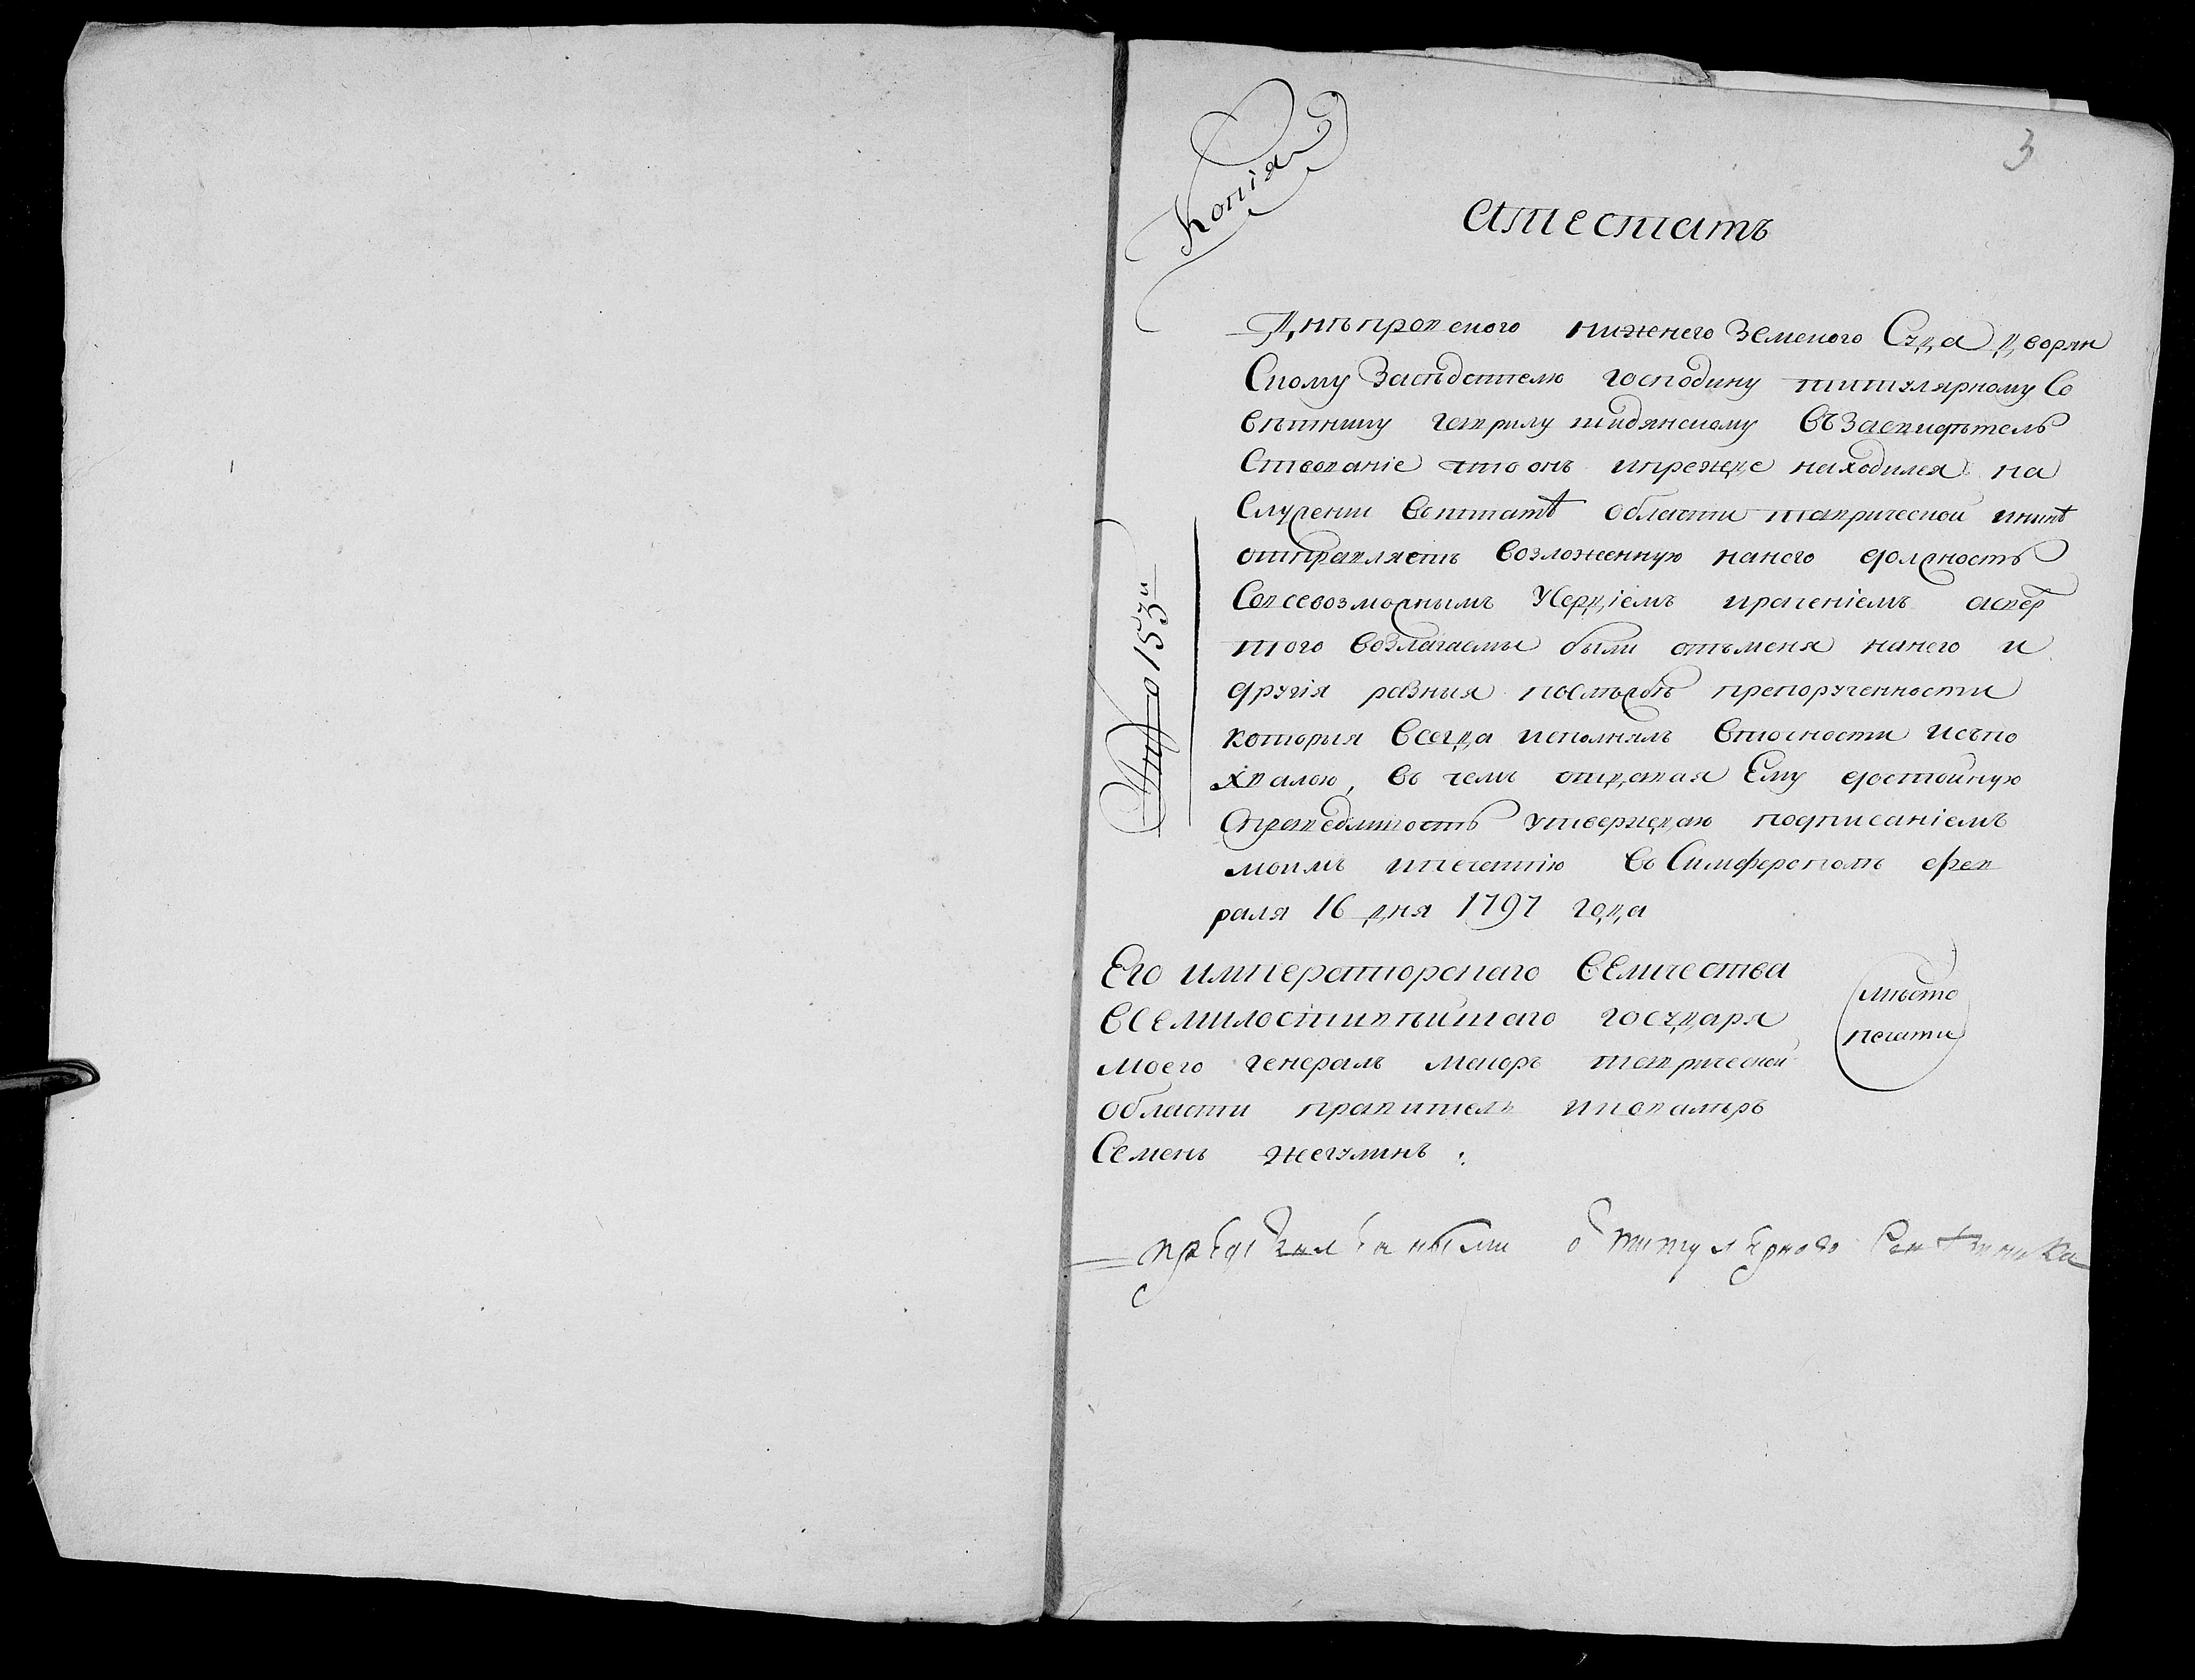 Копія
3
атестатъ
Днѣпровского нижнего Земского Суда дворян
Скому Засѣдателю господину титулярному Со
вѣтнику гаврилу въ Засвидѣтель
Ствованіе что онъ ипрежде находился на
Служении вштатѣ области таврической инынѣ
отправляетъ возложенную нанего должность
Совсевозможнымъ Усердіемъ ираченіемъ асвер
того возлагаемы были отъменя нанего и
другія разныя препорученности
которыя всегда исполнялъ вточности исъпо
хвалою, въ чемъ отдавая Ему достойную
Справедливость утверждаю подписаніемъ
моимъ ипечатію въ Симферополѣ фев
раля 16 дня 1797 года
№ 153й
Его императорскаго величества
всемилостивѣйшаго государя
моего генералъ маіоръ таврической
области правитель икавалѣръ
Семенъ жегулинъ :
мѣсто
печати
титулярного Советника